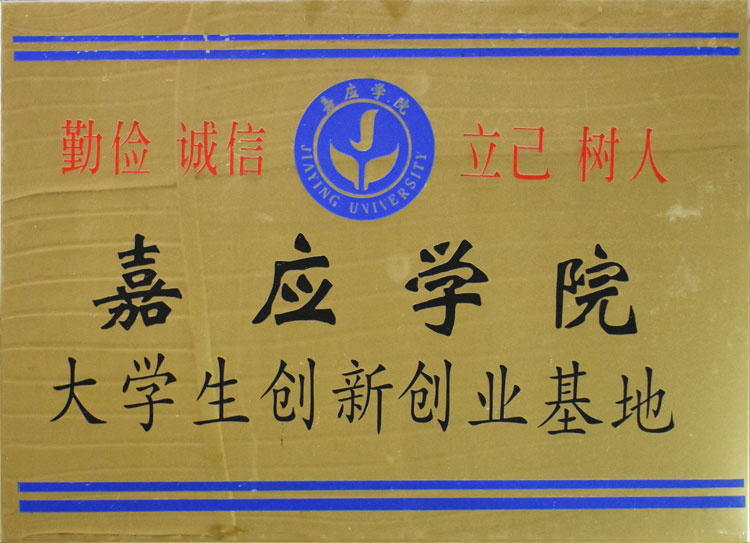 勤俭 诚信 立己 树人
嘉应学院
JIAYING UNIVERSITY
嘉应学院
大学生创新创业基地